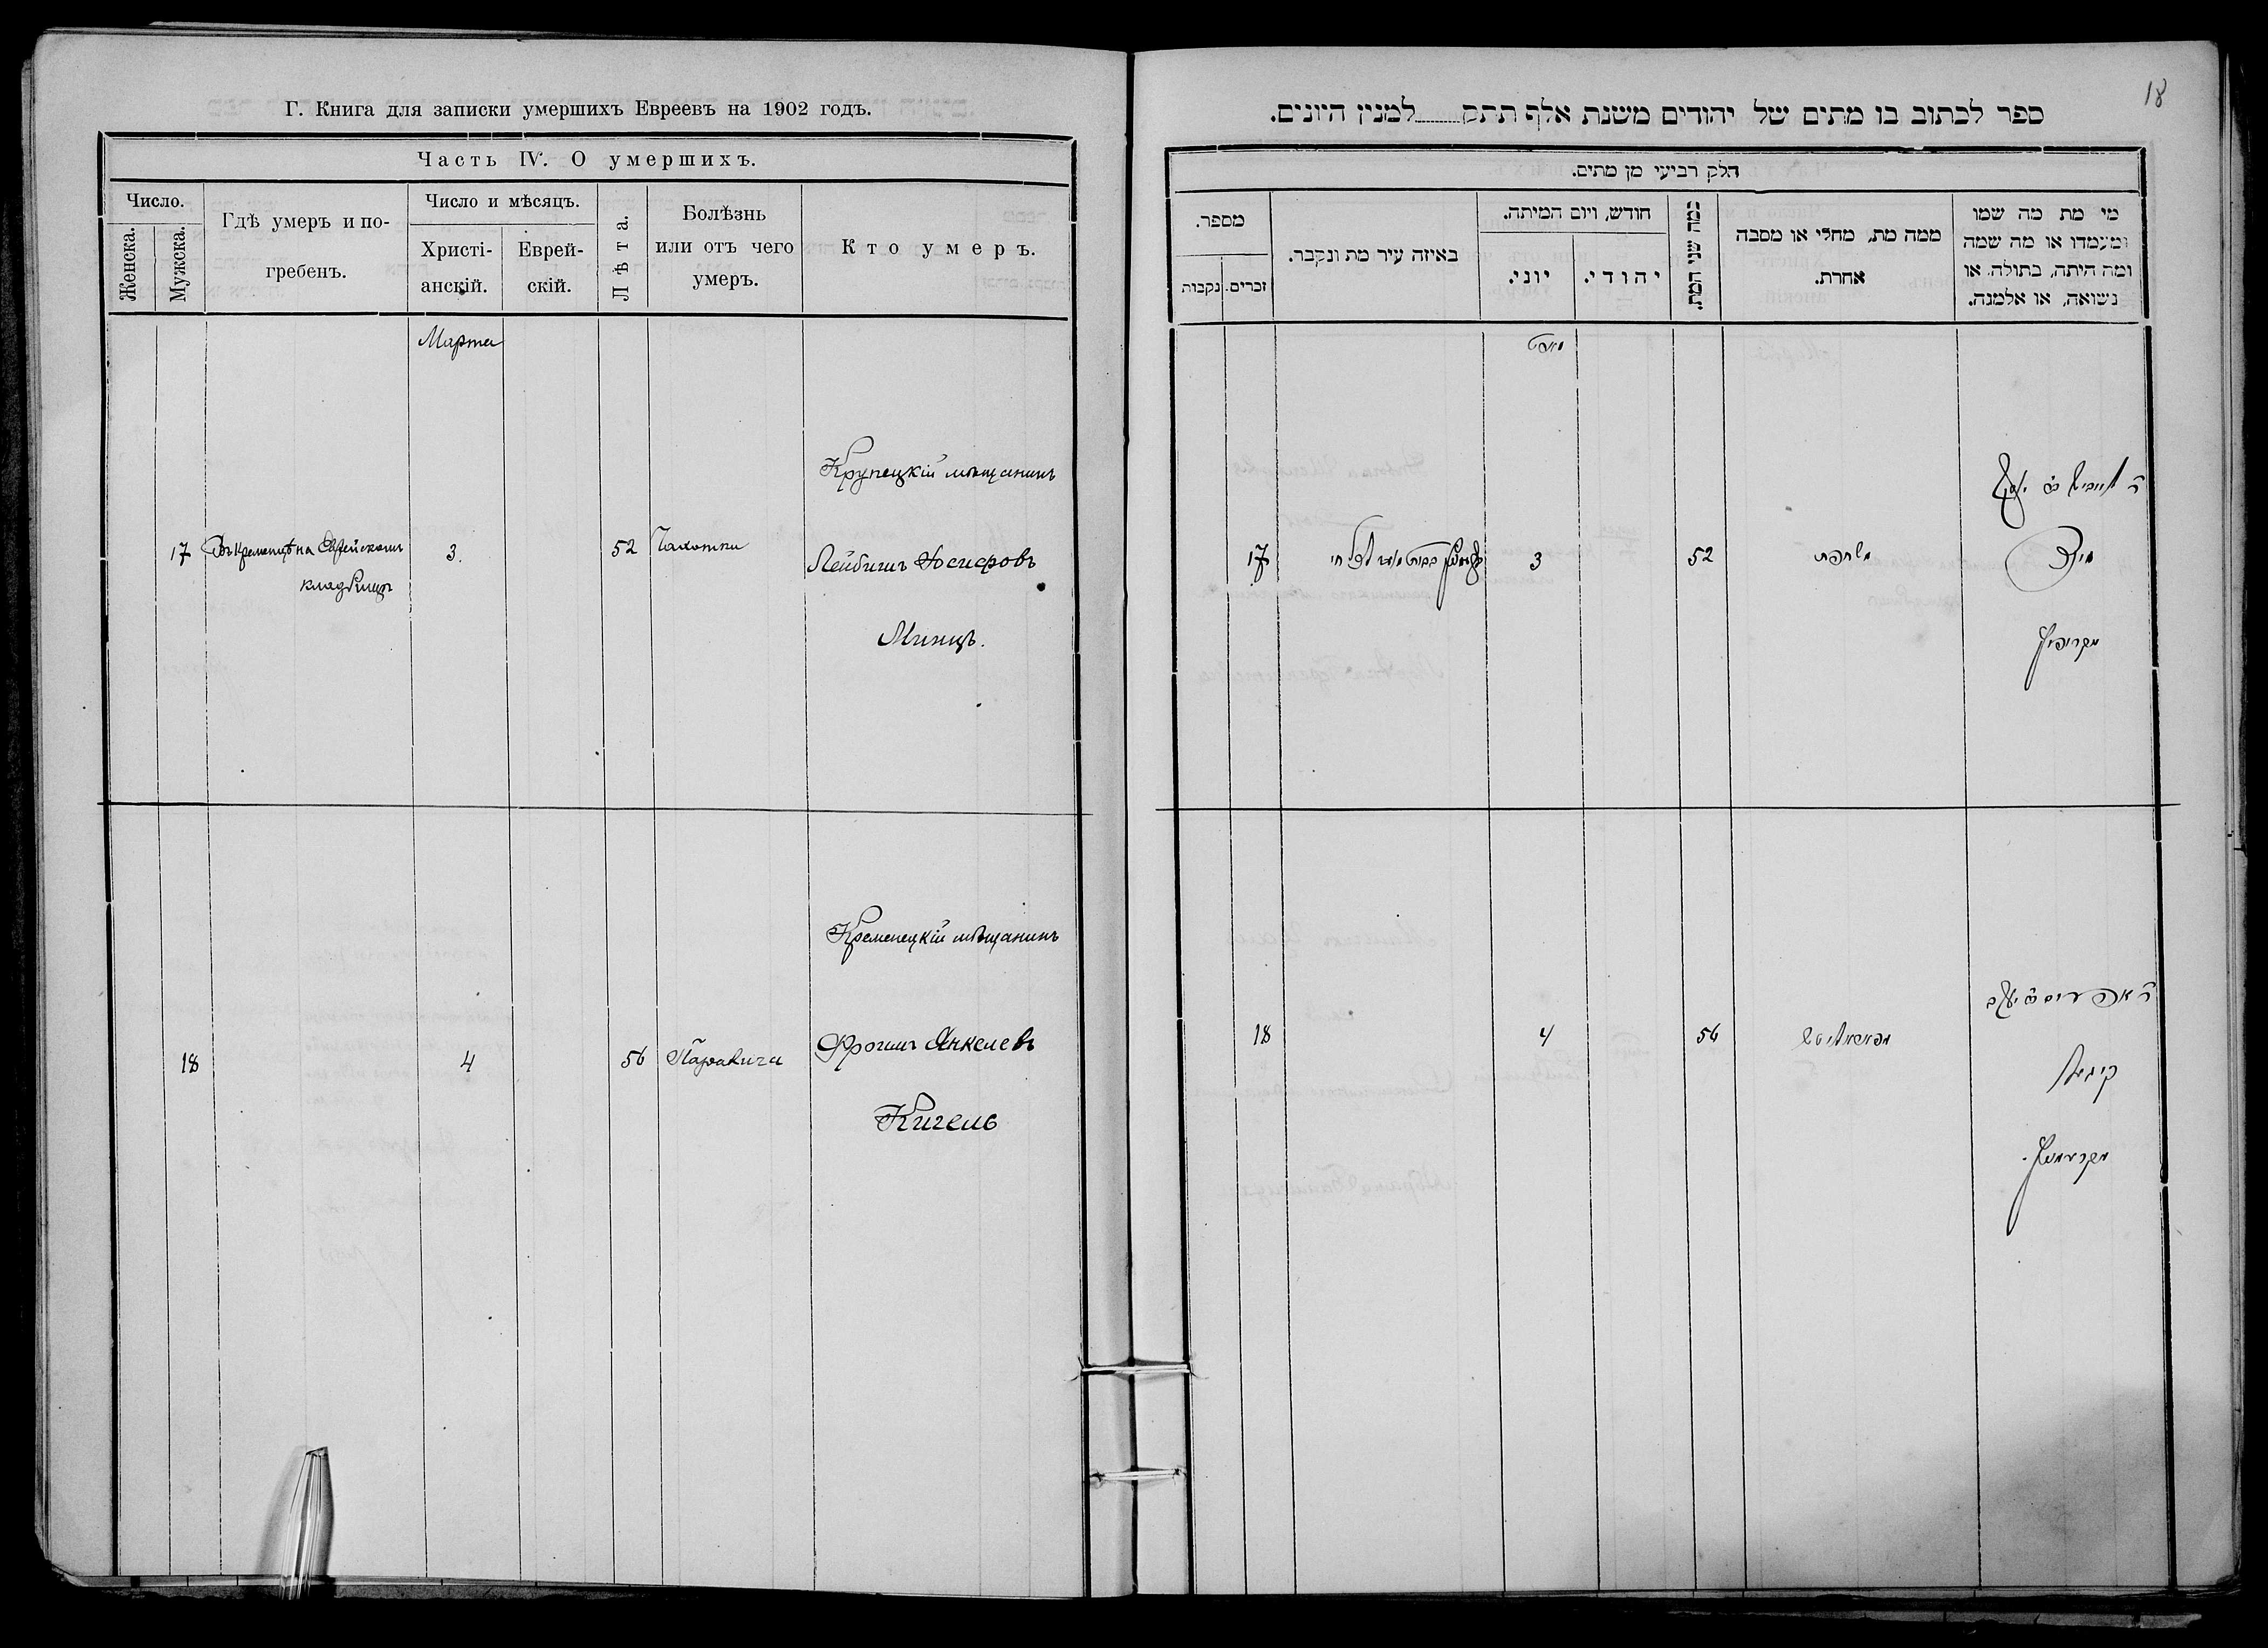 Г. Книга для записки умершихъ Евреевъ на 1902 годъ.
Часть IV. О умершихъ.
Число.
Женска.
Мужска.
Гдѣ умеръ и по-
гребенъ.
Число и мѣсяцъ.
Христі-
анскій.
Еврей-
скій.
Лѣта.
Болѣзнь
или отъ чего
умеръ.
Кто умеръ.
Марта
Крупецкій мѣщанинъ
17 Въ Кременцѣ на Еврейскомъ 3. 52 Чахотки Лейбишъ Иосифовъ
кладбищѣ
Минцъ.
Кременецкій мѣщанинъ
18 4 56 Паралича Фроимъ Янкелевъ
Кигель
18
ספר לכתוב בו מתים של יהודים משנת אלף תתק למנין היונים.
חלק רביעי מן מתים.
מספר.
נקבות
זכרים.
באיזה עיר מת ונקבר.
חודש, ויום המיתה.
יוני.
יהודי.
כמה שני המת.
ממה מת, מחלי או מסבה
אחרת.
מי מת מה שמו
ומעמדו או מה שמה
ומה היתה, בתולה, או
נשואה, או אלמנה.
מארט
ר לייביש ב יוסף
17 3 52 שחפת
מינץ
מקרופיץ
ר אפרים ב יעקב
18 4 56
קיגעל
מקרעמניץ